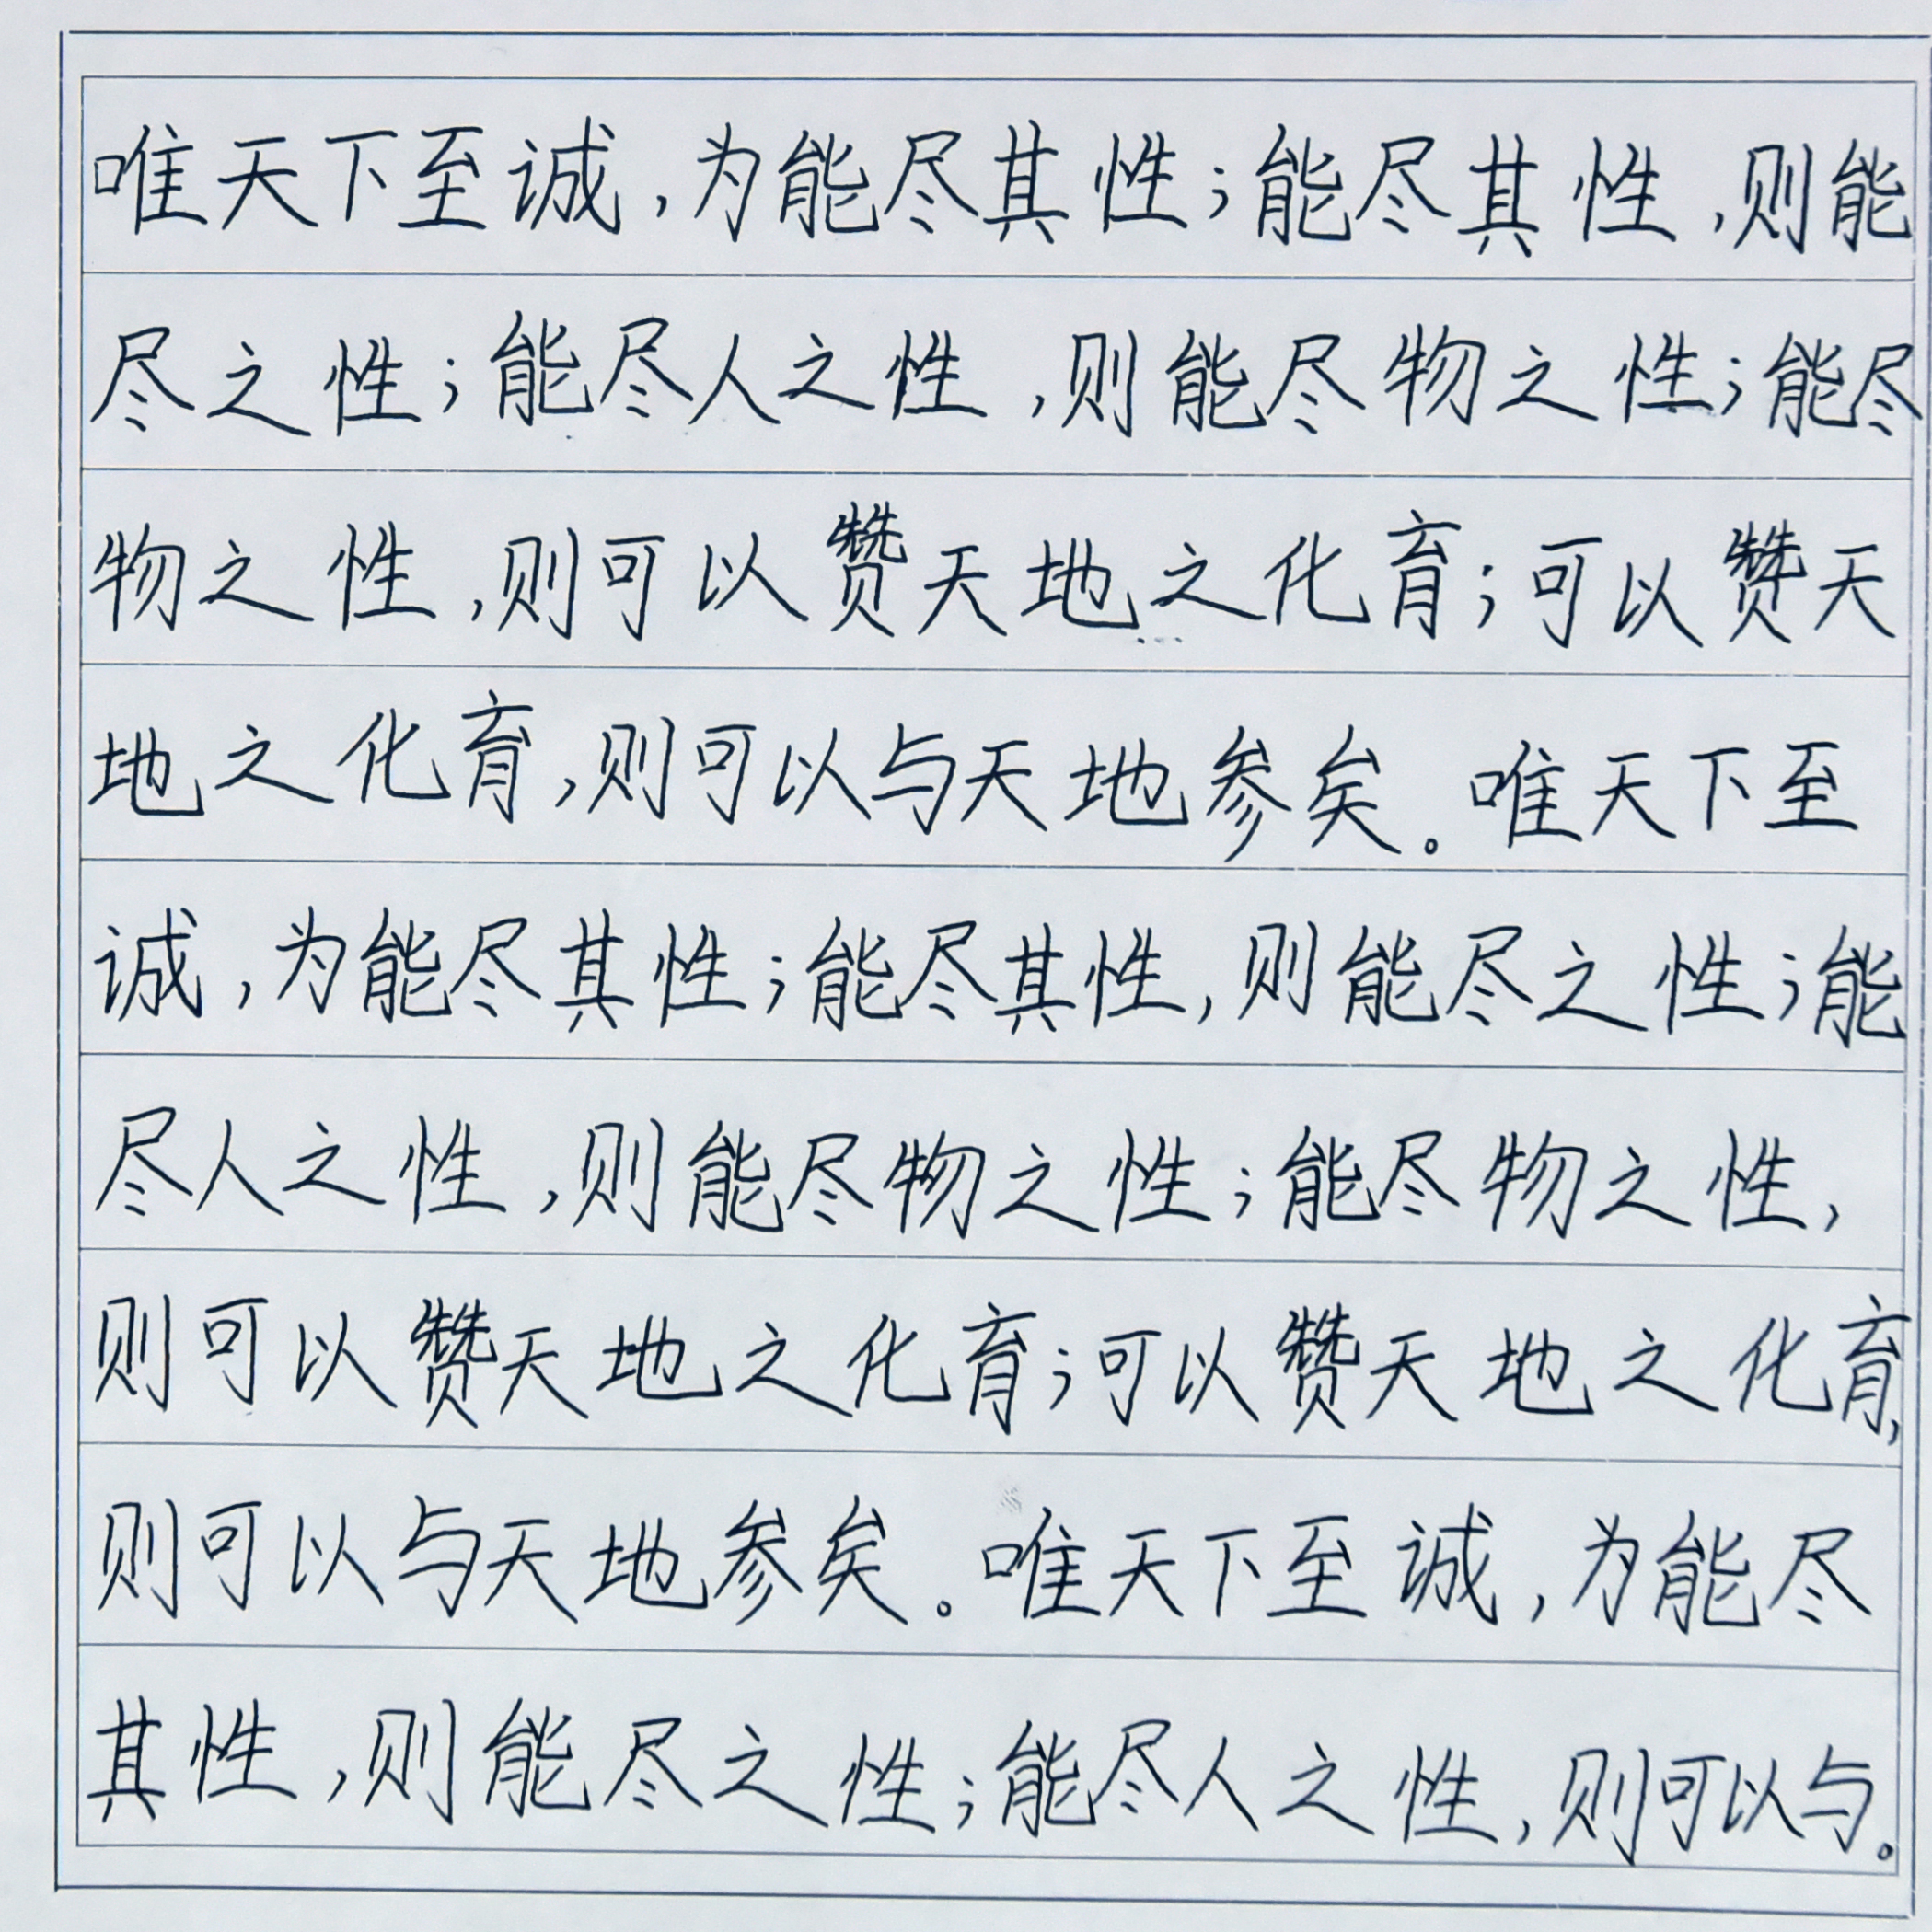 唯天下至诚，为能尽其性；能尽其性，则能
尽之性；能尽人之性，则能尽物之性；能尽
物之性，则可以赞天地之化育；可以赞天
地之化育，则可以与天地参矣。唯天下至
诚，为能尽其性；能尽其性，则能尽之性；能
尽人之性，则能尽物之性；能尽物之性，
则可以赞天地之化育；可以赞天地之化育，
则可以与天地参矣。唯天下至诚，为能尽
其性，则能尽之性；能尽人之性，则可以与。